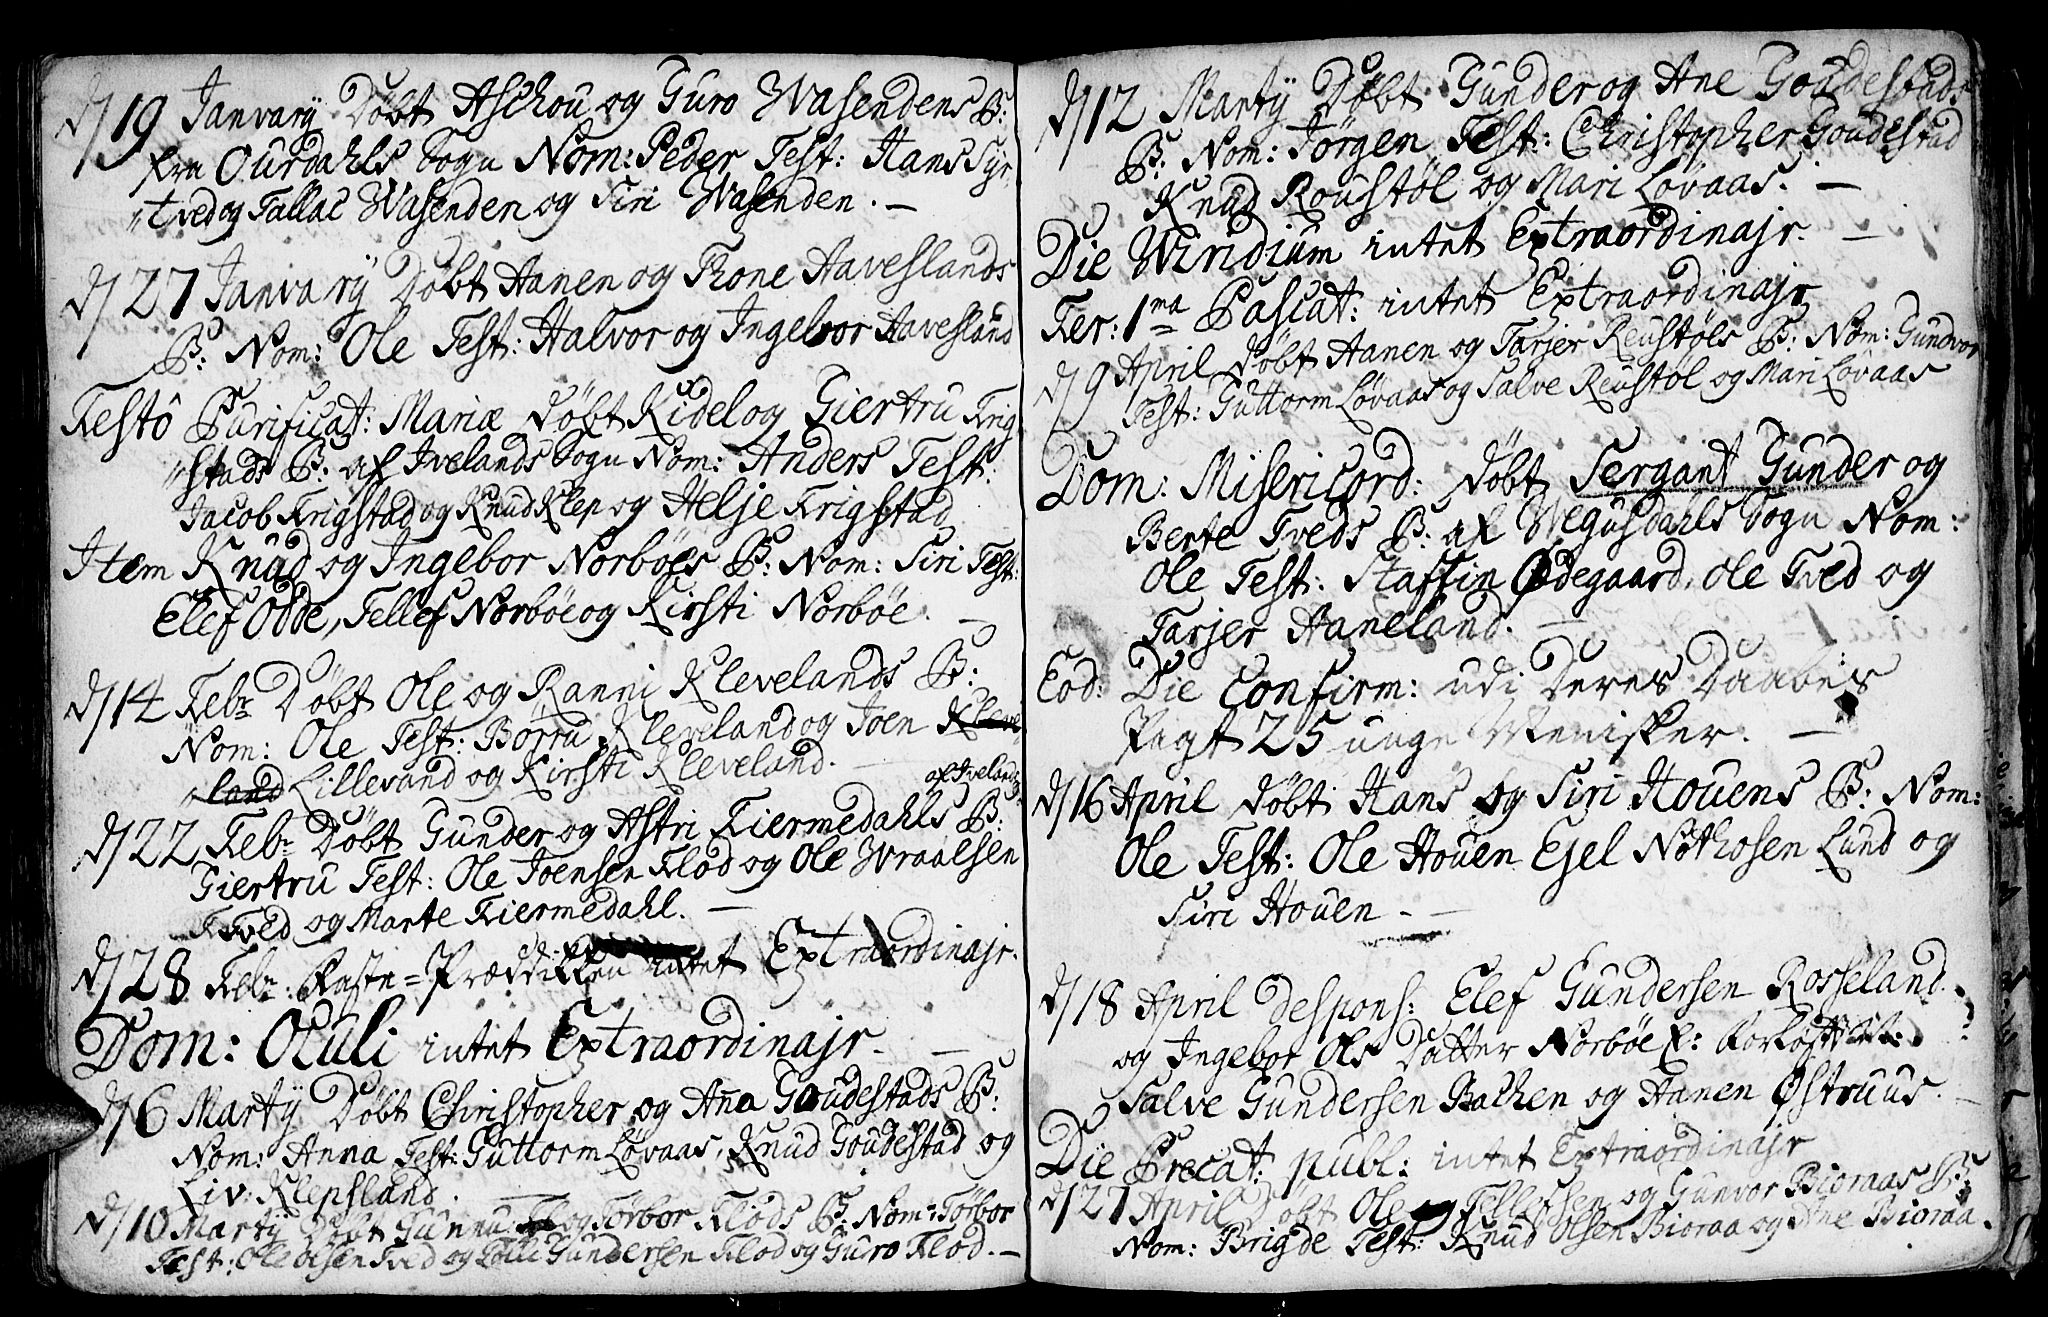 d/19 Janvary Døbt Aschou og Guro Wasendens B:
fra Ourdahls Sogn Nom: Peder Test: Hans Syr-
"tved og Tallac Wasenden og Siri Wasenden. —
d/27 Janvary Døbt Aanen og Thone Aaveslands
B: Nom: Ole Test: Halvor og Ingebor Aavesland
Festô Purificat: Mariæ Døbt Kidel og Giertru Frig
"stads B: af Ivelands Sogn Nom: Anders Test:
Jacob Frigstad og Knud Klep og Helje Frigstad
Item Knud og Ingebor Norbøes B: Nom: Siri Test:
Elef Odde, Tellef Norbøe og Kirsti Norbøe. —
d/14 Febr Døbt Ole og Ranni Klevelands B:
Nom: Ole Test: Borru Kleveland og Joen Kleve
"land Lillevand og Kirsti Kleveland. —
af Ivelands
d/22 Febr Døbt Gunder og Astri Fiermedahls B:
Giertru Test: Ole Joensen Flod og Ole Wraalsen
Tved og Marte Fiermedahl. —
d/28 Febr: Faste=Prædikken intet Extraordinajr.
Dom: Oculi intet Extraordinajr. —
d/6 Marty Døbt Christopher og Anna Goudestads B:
Nom: Anna Test: Guttorm Løvaas, Knud Goudestad og
Liv: Klepsland. —
d/10 Marty Døbt Gunnu og Torbor Flods B: Nom: Torbor
Test: Ole Olsen Tved og Gundersen Flod og Guro Flod. —
d/12 Marty Døbt Gunder og Ane Goudestads
B: Nom: Jørgen Test: Christopher Goudestad
Knud Roustøl og Mari Løvaas. —
Die Viridium intet Extraordinajr. —
Fer: 1ma Pascat: intet Extraordinajr
d/9 April Døbt Aanen og Tarjer Reustøls B: Nom: Gundvor
Test: Guttorm Løvaas og Salve Reustøl og Mari Løvaas
Dom: Misericord: Døbt Sergant Gunder og
Berte Tveds B: af Wegusdahls Sogn Nom:
Ole Test: Staffin Ødegaard, Ole Tved og
Tarjer Haneland. —
Eod: Die Confirm: udi Deres Daabes
Pagt 25 unge Menisker. —
d/16 April Døbt Hans og Siri Houens B: Nom:
Ole Test: Ole Houen Ejel Nøthosen Lund og
Siri Houen. —
d/18 April Despons: Elef Gundersen Rosseland
og Ingebor Ols Datter Norbøe f: Forløft
Salve Gundersen Bachen og Aanen Østruus. —
Die Precat: publ: intet Extraordinajr
d/27 April Døbt Ole Tellefsen og Gunvor Bioraas B:
Nom: Brigde Test: Knud Olsen Bioraa og Ane Bioraa.